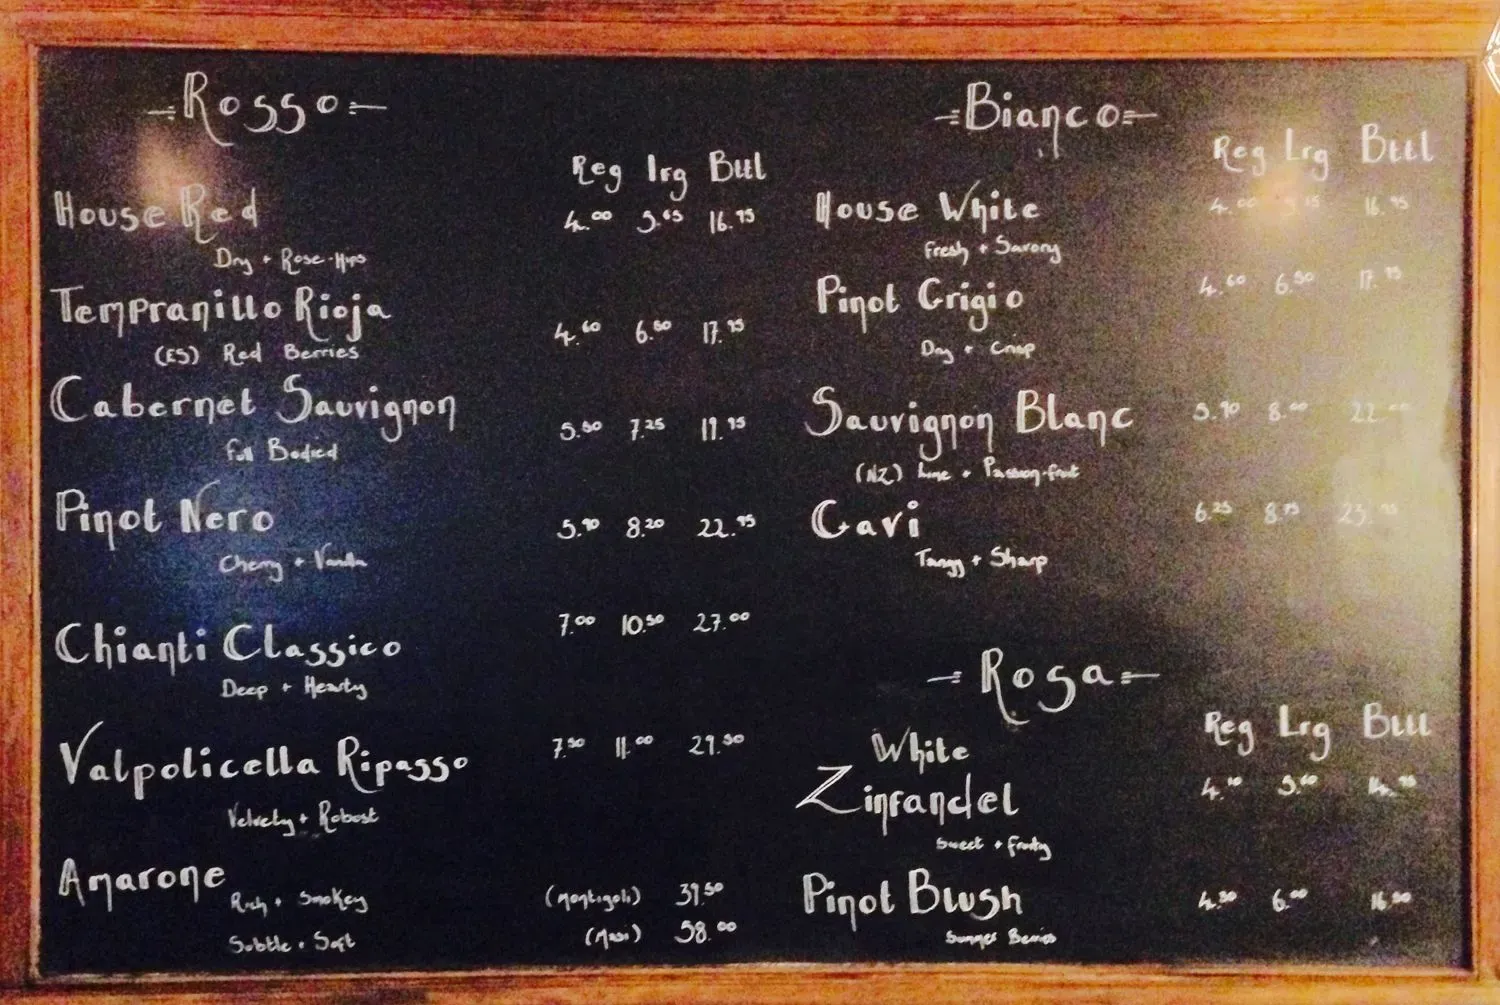 Rosso
Reg lrg Bttl
House Red 4.00 5.65 16.95
Dry + Rose-Hips
Tempranillo Rioja 4.60 6.50 17.95
(ES) Red Berries
Cabernet Sauvignon 5.50 7.25 19.95
Full Bodied
Pinot Nero 5.90 8.20 22.95
Cherry + Vanilla
Chianti Classico 7.00 10.50 27.00
Deep + Hearty
Valpolicella Ripasso 7.50 11.00 29.50
Velvety + Robust
Amarone
Rich + Smokey (Montigoli) 39.50
Subtle + Soft (Masi) 58.00
Bianco
Reg Lrg Bttl
House White 4.00 16.95
Fresh + Savory
Pinot Grigio 4.60 6.50 17.95
Dry + Crisp
Sauvignon Blanc 5.90 8.00 22.00
(NZ) Lime + Passion-fruit
Gavi 6.25 8.75
Tangy + Sharp
Rosa
Reg Lrg Bttl
White
Zinfandel 5.60
Sweet + Fruity
Pinot Blush 4.30 6.00 16.50
Summer Berries